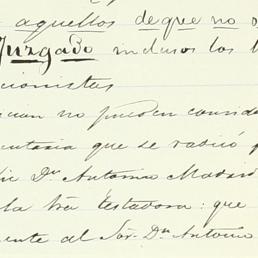 aquellos de que no
Juzgado inclusos los
cionistas
no pueden
que se radicó
Dn Antonio Madrid
la tra testadora: que
ente al Sor. Dn Antonio